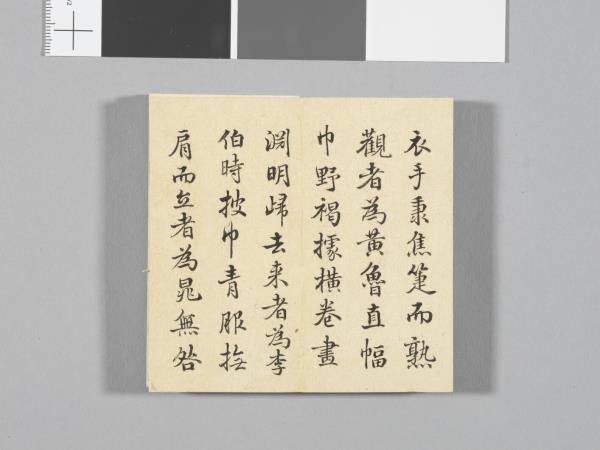 衣手秉焦箑而熟
觀者為黃魯直幅
巾野褐據橫卷畫
淵明歸去来者為李
伯時披巾青服撫
肩而立者為晁無咎